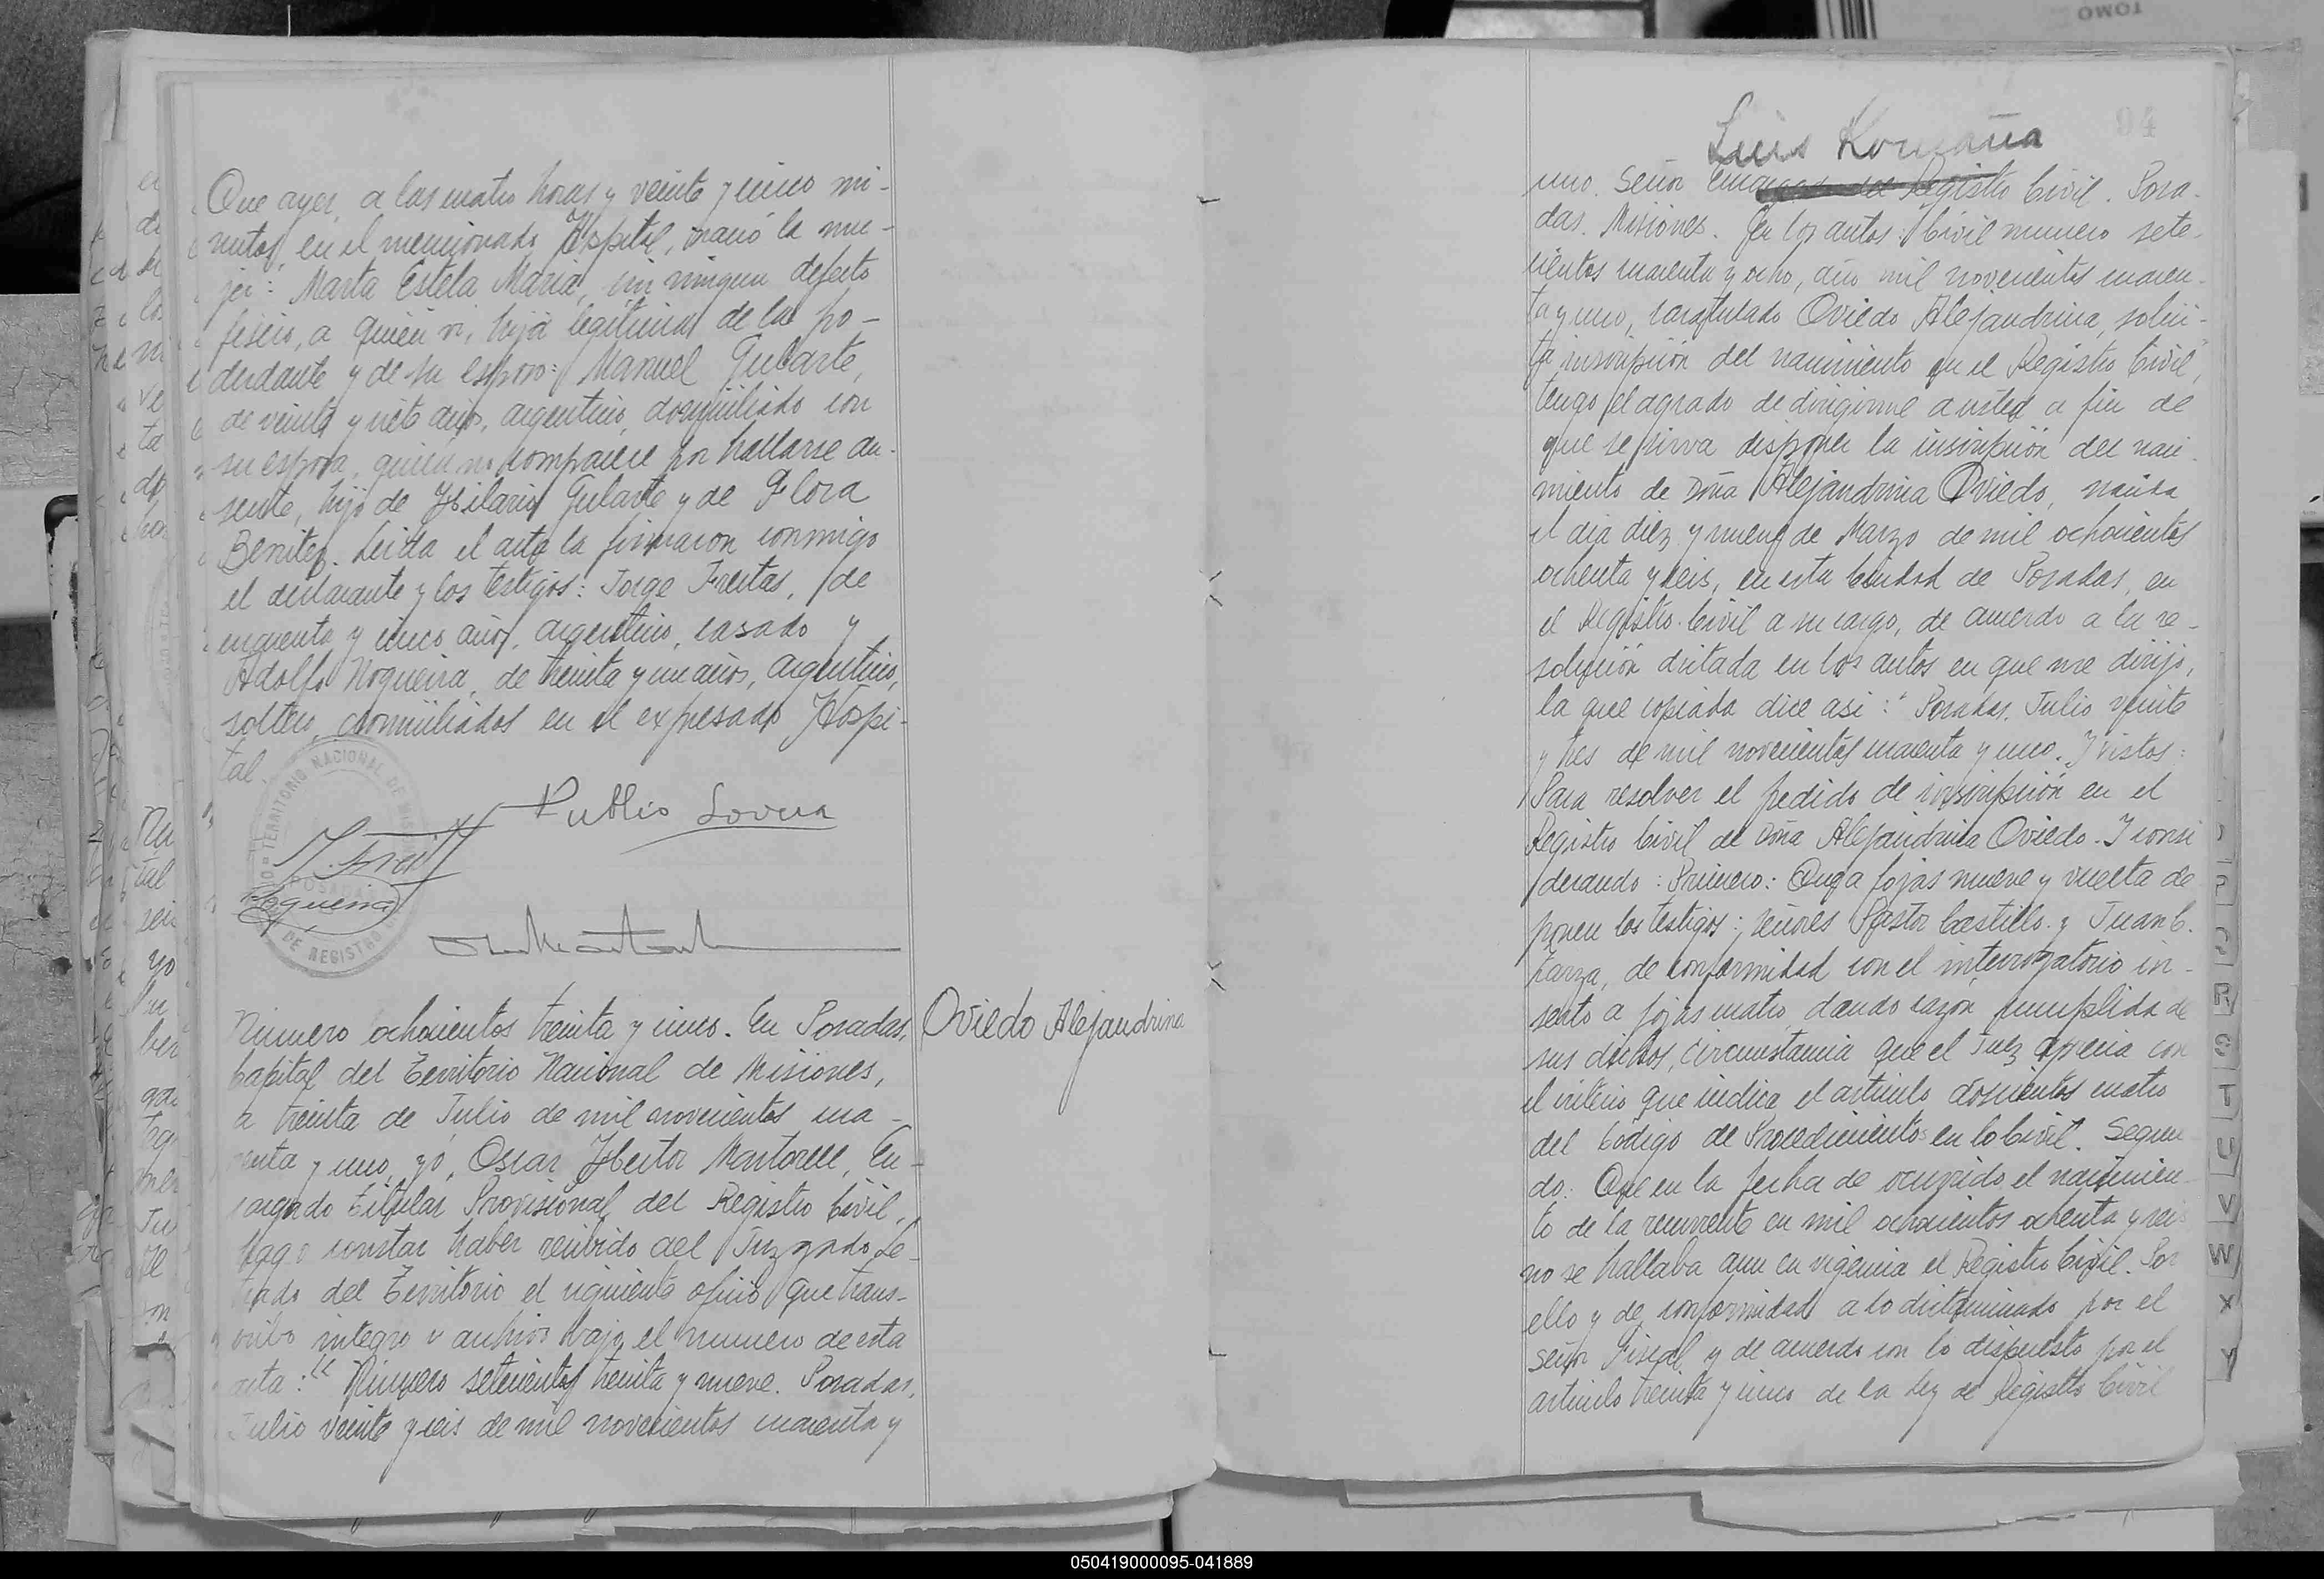 Que ayer, a las cuatro horas y veinte y cinco mi-
nutos, en el mencionado Hospital, nació la mu-
jer: Marta Estela María, sin ningun defecto
fisico, a quien vi, hija legitima de la po-
derdante y de su esposo: Manuel Gularte,
de veinte y siete años, argentino, domiciliado con
su esposa, quien no comparece por hallarse au-
sente, hijo de Hilario Gularte y de Flora
Benitez. Leida el acta la firmaron conmigo
el declarante y los testigos: Jorge Freitas, de
cuarenta y cinco años, argentino, casado y
Adolfo Nogueira, de treinta y un años, argentino,
soltero, domiciliados en el expresado Hospi-
tal.
TERRITORIO NACIONAL DE MIS
POSADAS
DE REGISTRO
Publio
Nogueira
Número ochocientos treinta y cinco. En Posadas,
Capital del Territorio Nacional de Misiones,
a treinta de Julio de mil novecientos cua-
renta y uno, yo, Oscar Hector Martorell, En-
cargado Titular Provisional del Registro Civil,
hago constar haber recibido del Juzgado Le-
trado del Territorio el siguiente oficio que trans-
cribo integro y archivo bajo el número de esta
acta: "Número setecientos treinta y nueve. Posadas,
Julio veinte y seis de mil novecientos cuarenta y
Oviedo Alejandrina
94
Luis
uno. Señor Encargado del Registro Civil. Posa-
das. Misiones. En los autos: "Civil numero sete-
cientos cuarenta y ocho, año mil novecientos cuaren-
ta y uno, caratulado Oviedo Alejandrina, solici-
ta inscripción del nacimiento en el Registro Civil",
tengo el agrado de dirigirme a usted a fin de
que se sirva disponer la inscripción del naci-
miento de Doña Alejandrina Oviedo, nacida
el día diez y nueve de Marzo de mil ochocientos
ochenta y seis, en esta Ciudad de Posadas, en
el Registro Civil a su cargo, de acuerdo a la re-
solución dictada en los autos en que me dirijo,
la que copiada dice asi: "Posadas, Julio veinte
y tres de mil novecientos cuarenta y uno. Y vistos:
Para resolver el pedido de inscripción en el
Registro Civil de Doña Alejandrina Oviedo. Y consi
derando: Primero: Que a fojas nueve y vuelta de
ponen los testigos: señores Pastor Castillo y Juan C.
de conformidad con el interrogatorio in-
serto a fojas cuatro, dando razón cumplida de
sus dichos, circunstancia que el Juez aprecia con
el criterio que indica el articulo doscientos cuatro
del Código de Procedimientos en lo Civil. Segun
do: Que en la fecha de ocurrido el nacimien-
to de la recurrente en mil ochocientos ochenta y seis
no se hallaba aun en vigencia el Registro Civil. Por
ello y de conformidad a lo dictaminado por el
señor Fiscal y de acuerdo con lo dispuesto por el
articulo treinta y cinco de la Ley de Registro Civil
P
Q
R
S
T
U
V
W
X
Y
TOMO
050419000095-041889